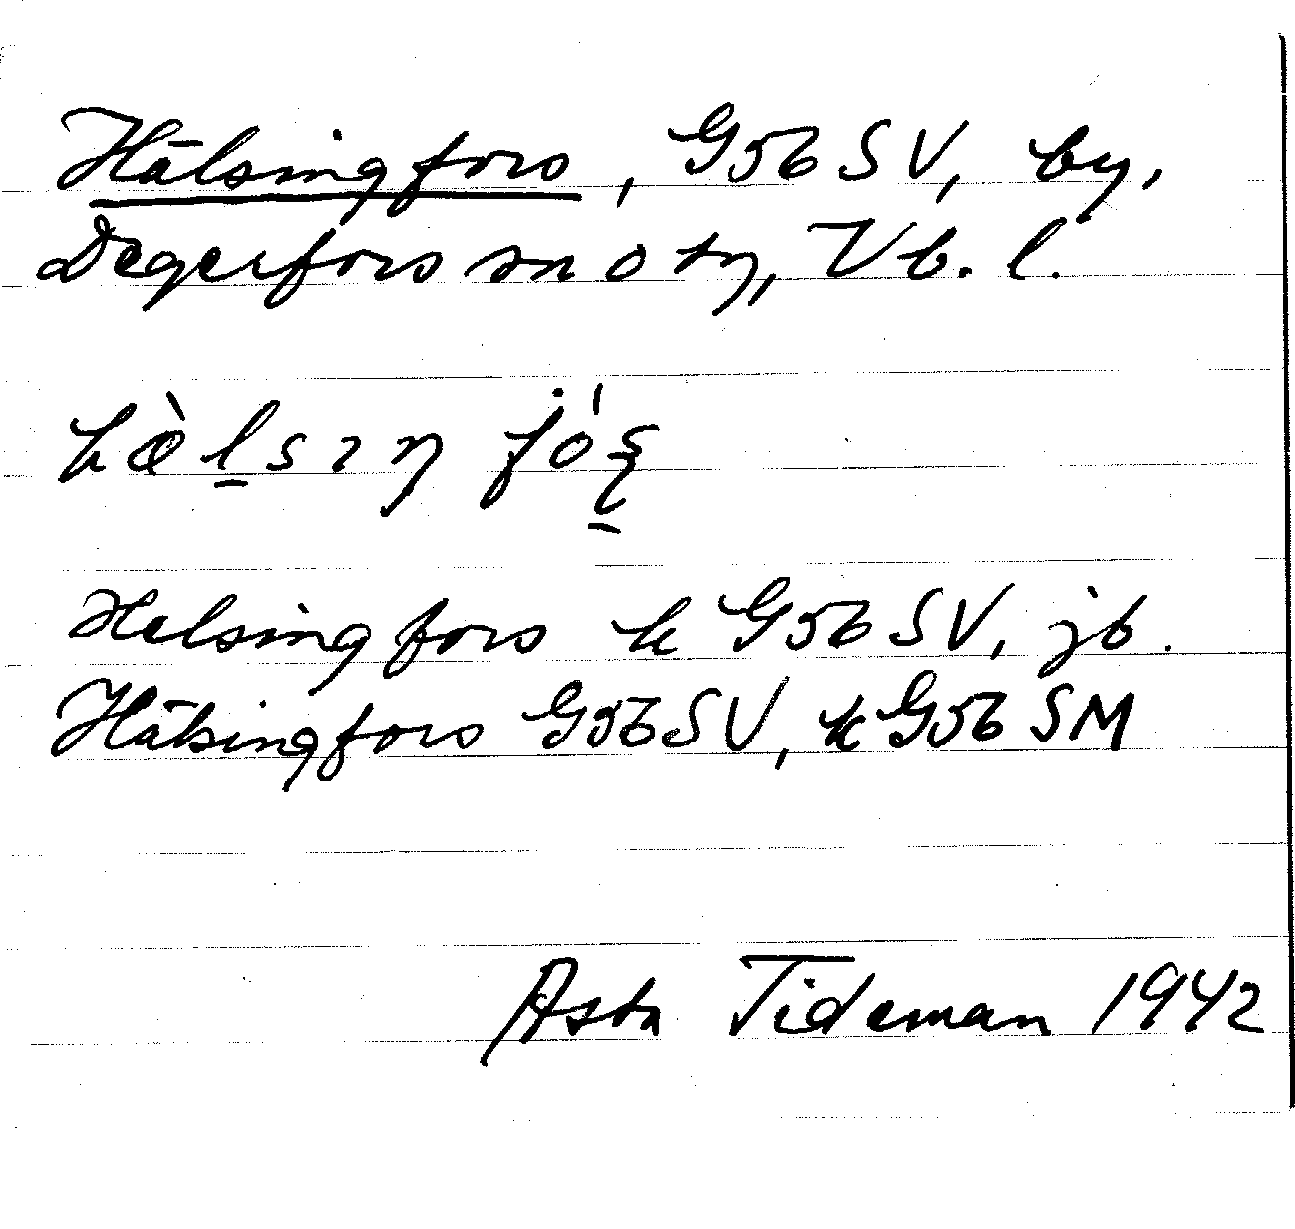 Hälsingfors, G56SV, by,
Degerfors sn o tg, Vb. l.
Helsingfors k G56SV, jb.
Hälsingfors G56SV, k G56SM
Asta Tideman 1942